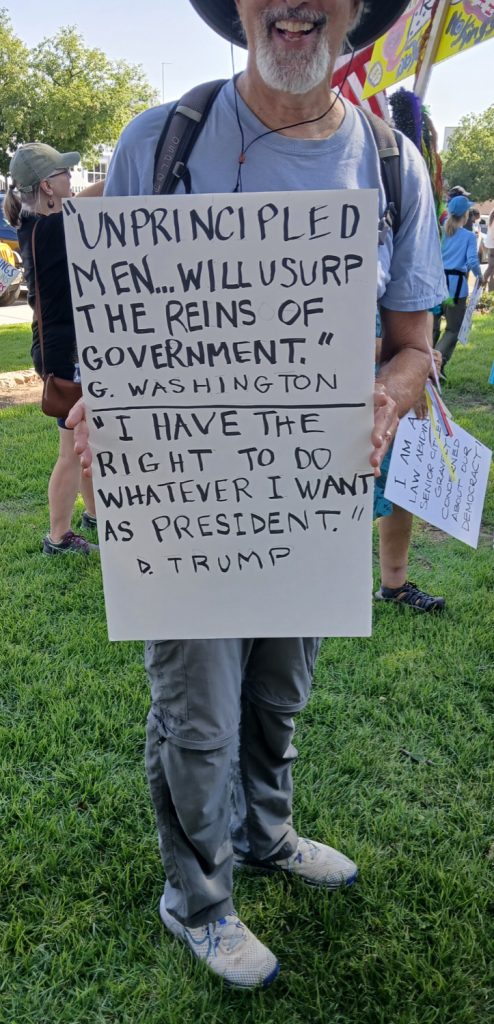 "UNPRINCIPLED
MEN...WILL USURP
THE REINS OF
GOVERNMENT."
G. WASHINGTON
"I HAVE THE
RIGHT TO DO
WHATEVER I WANT
AS PRESIDENT."
D. TRUMP
I AM A
LAW ABIDING
SENIOR CITIZEN
GRAVELY
CONCERNED
ABOUT OUR
DEMOCRACY
OSPREY